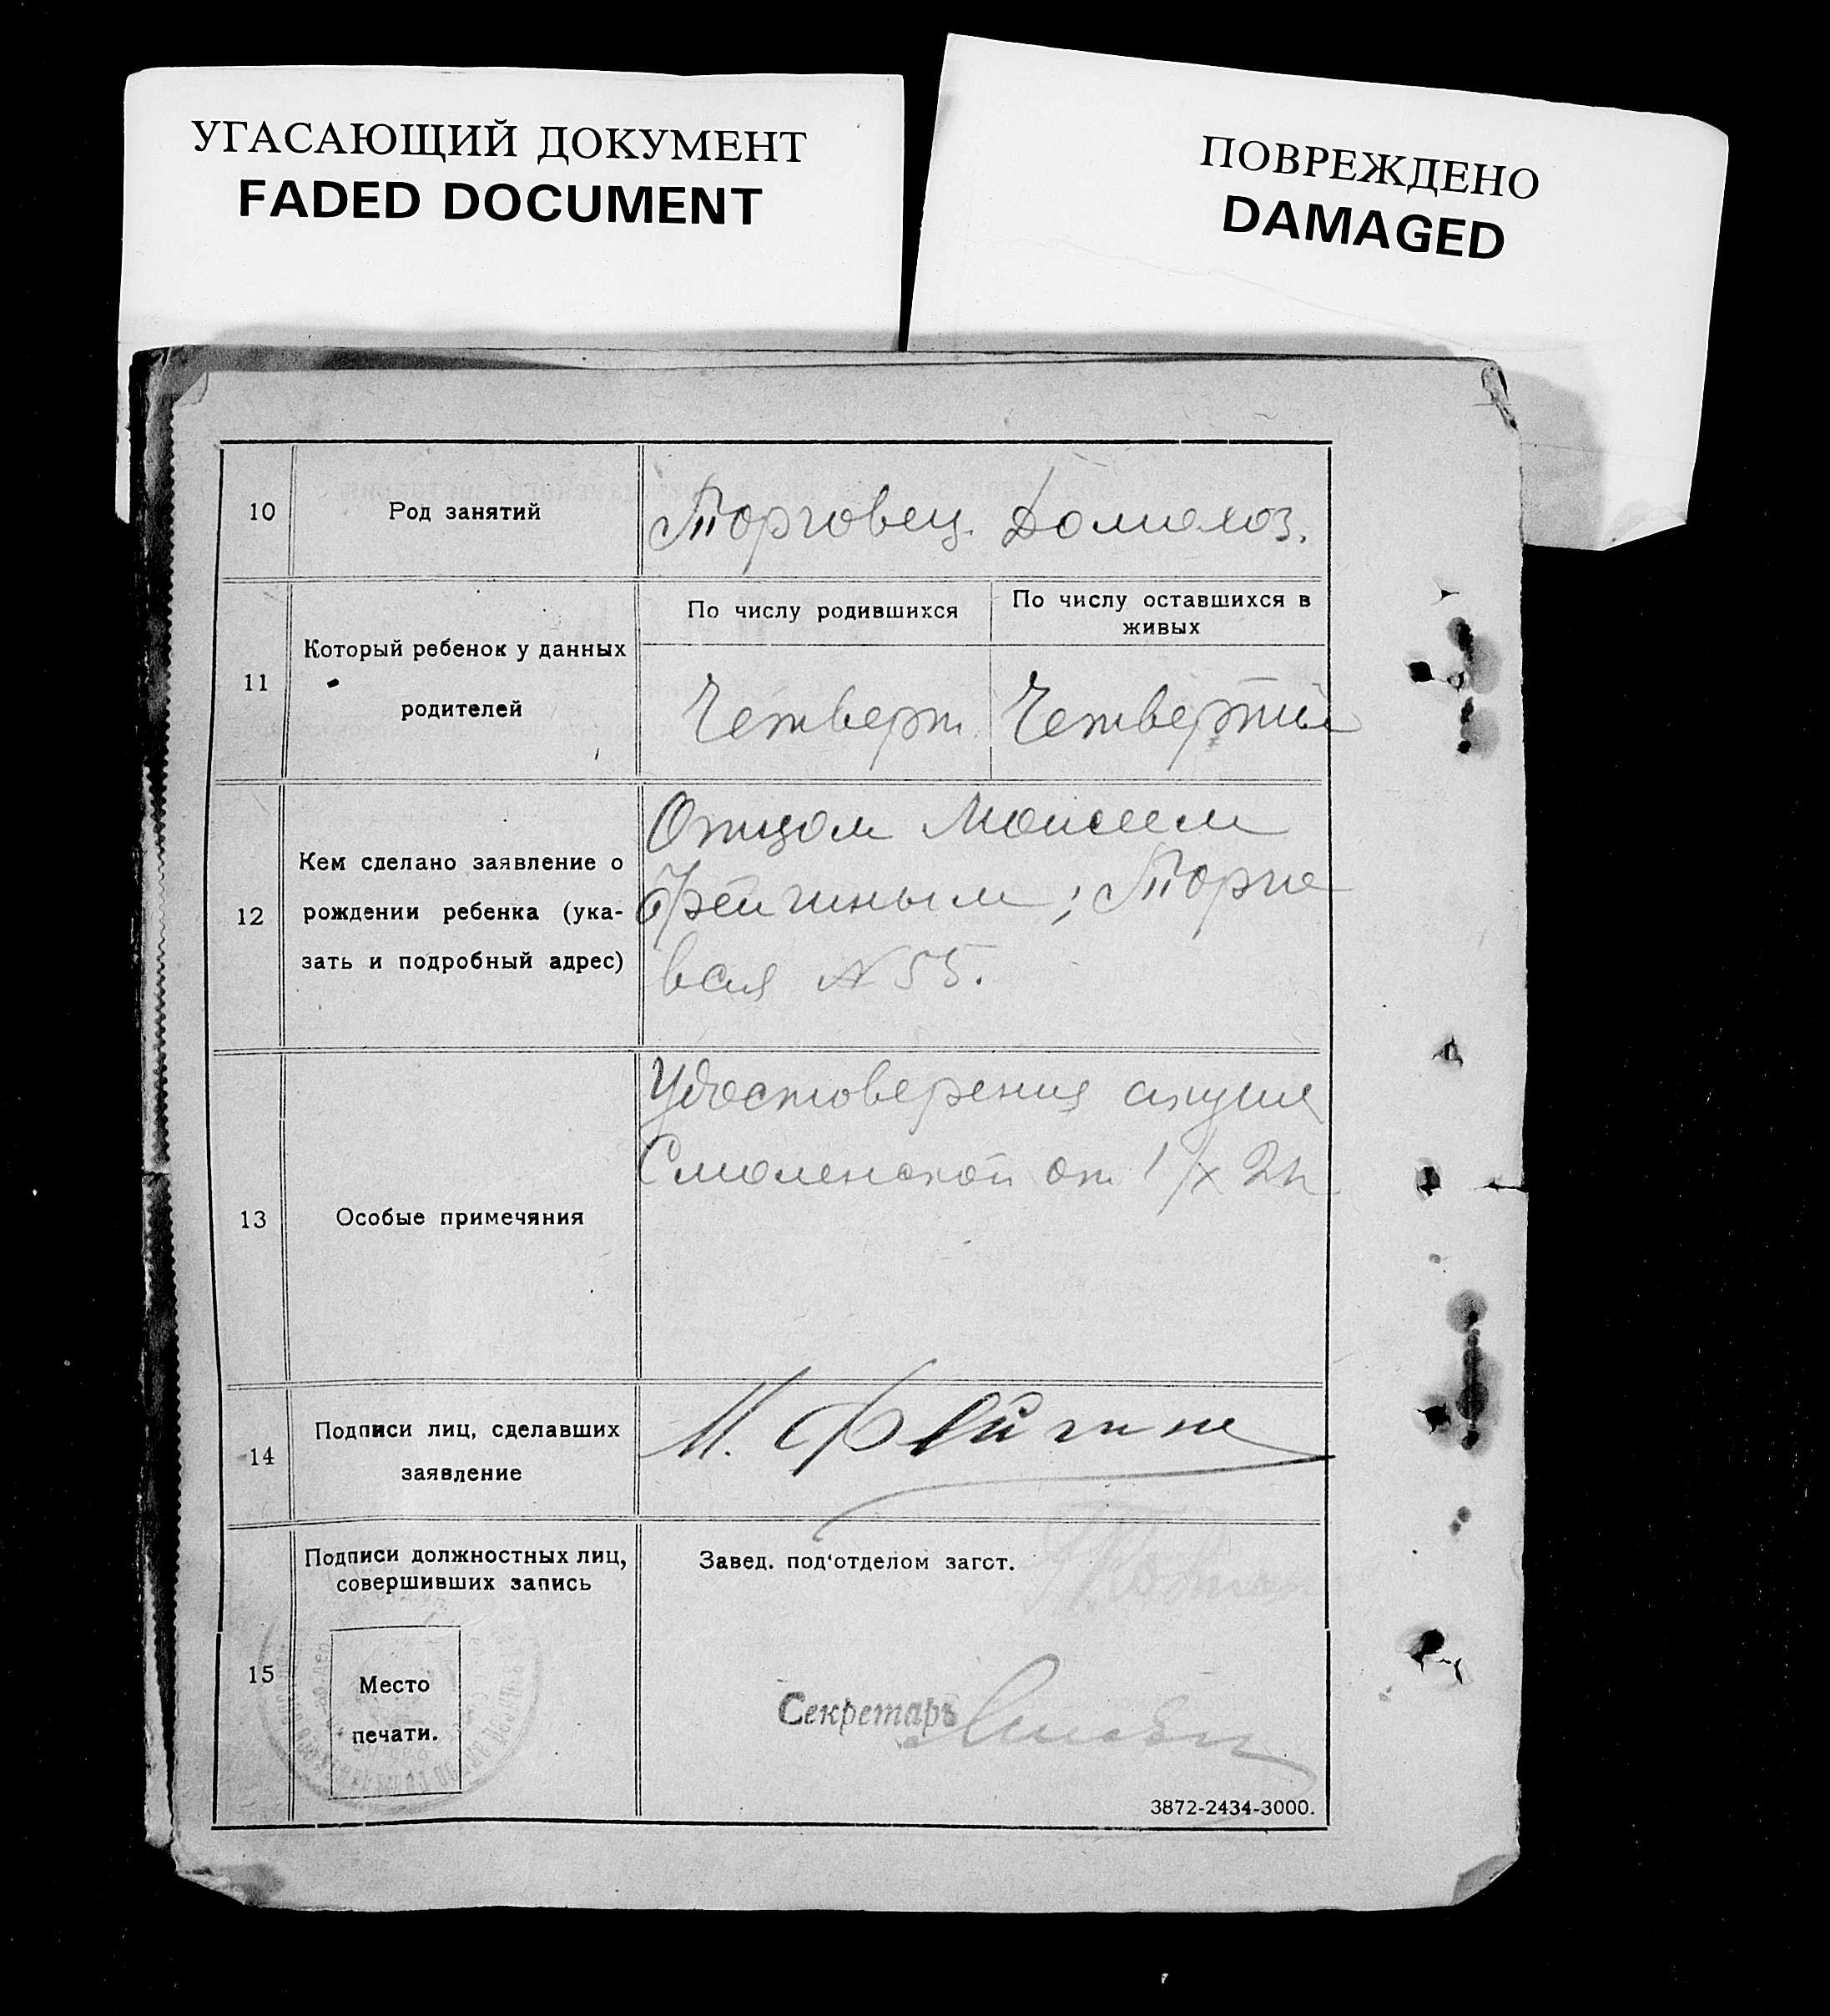 УГАСАЮЩИЙ ДОКУМЕНТ
FADED DOCUMENT
ПОВРЕЖДЕНО
DAMAGED
10
Род занятий
Торговец. Домохоз.
11
Который ребенок у данных
родителей
По числу родившихся
По числу оставшихся в
живых
Четверт.
Четвертый
12
Кем сделано заявление о
рождении ребенка (ука-
зать и подробный адрес)
Отцом Моисеем
Фейгиным; Торго
вая N 55.
13
Особые примечяния
Удостоверения акуше
Смоленской от 1/X
14
Подписи лиц, сделавших
заявление
М. Фейгин
15
Подписи должностных лиц,
совершивших запись
Место
печати.
Завед. под'отделом загст.
Секретарь
3872-2434-3000.